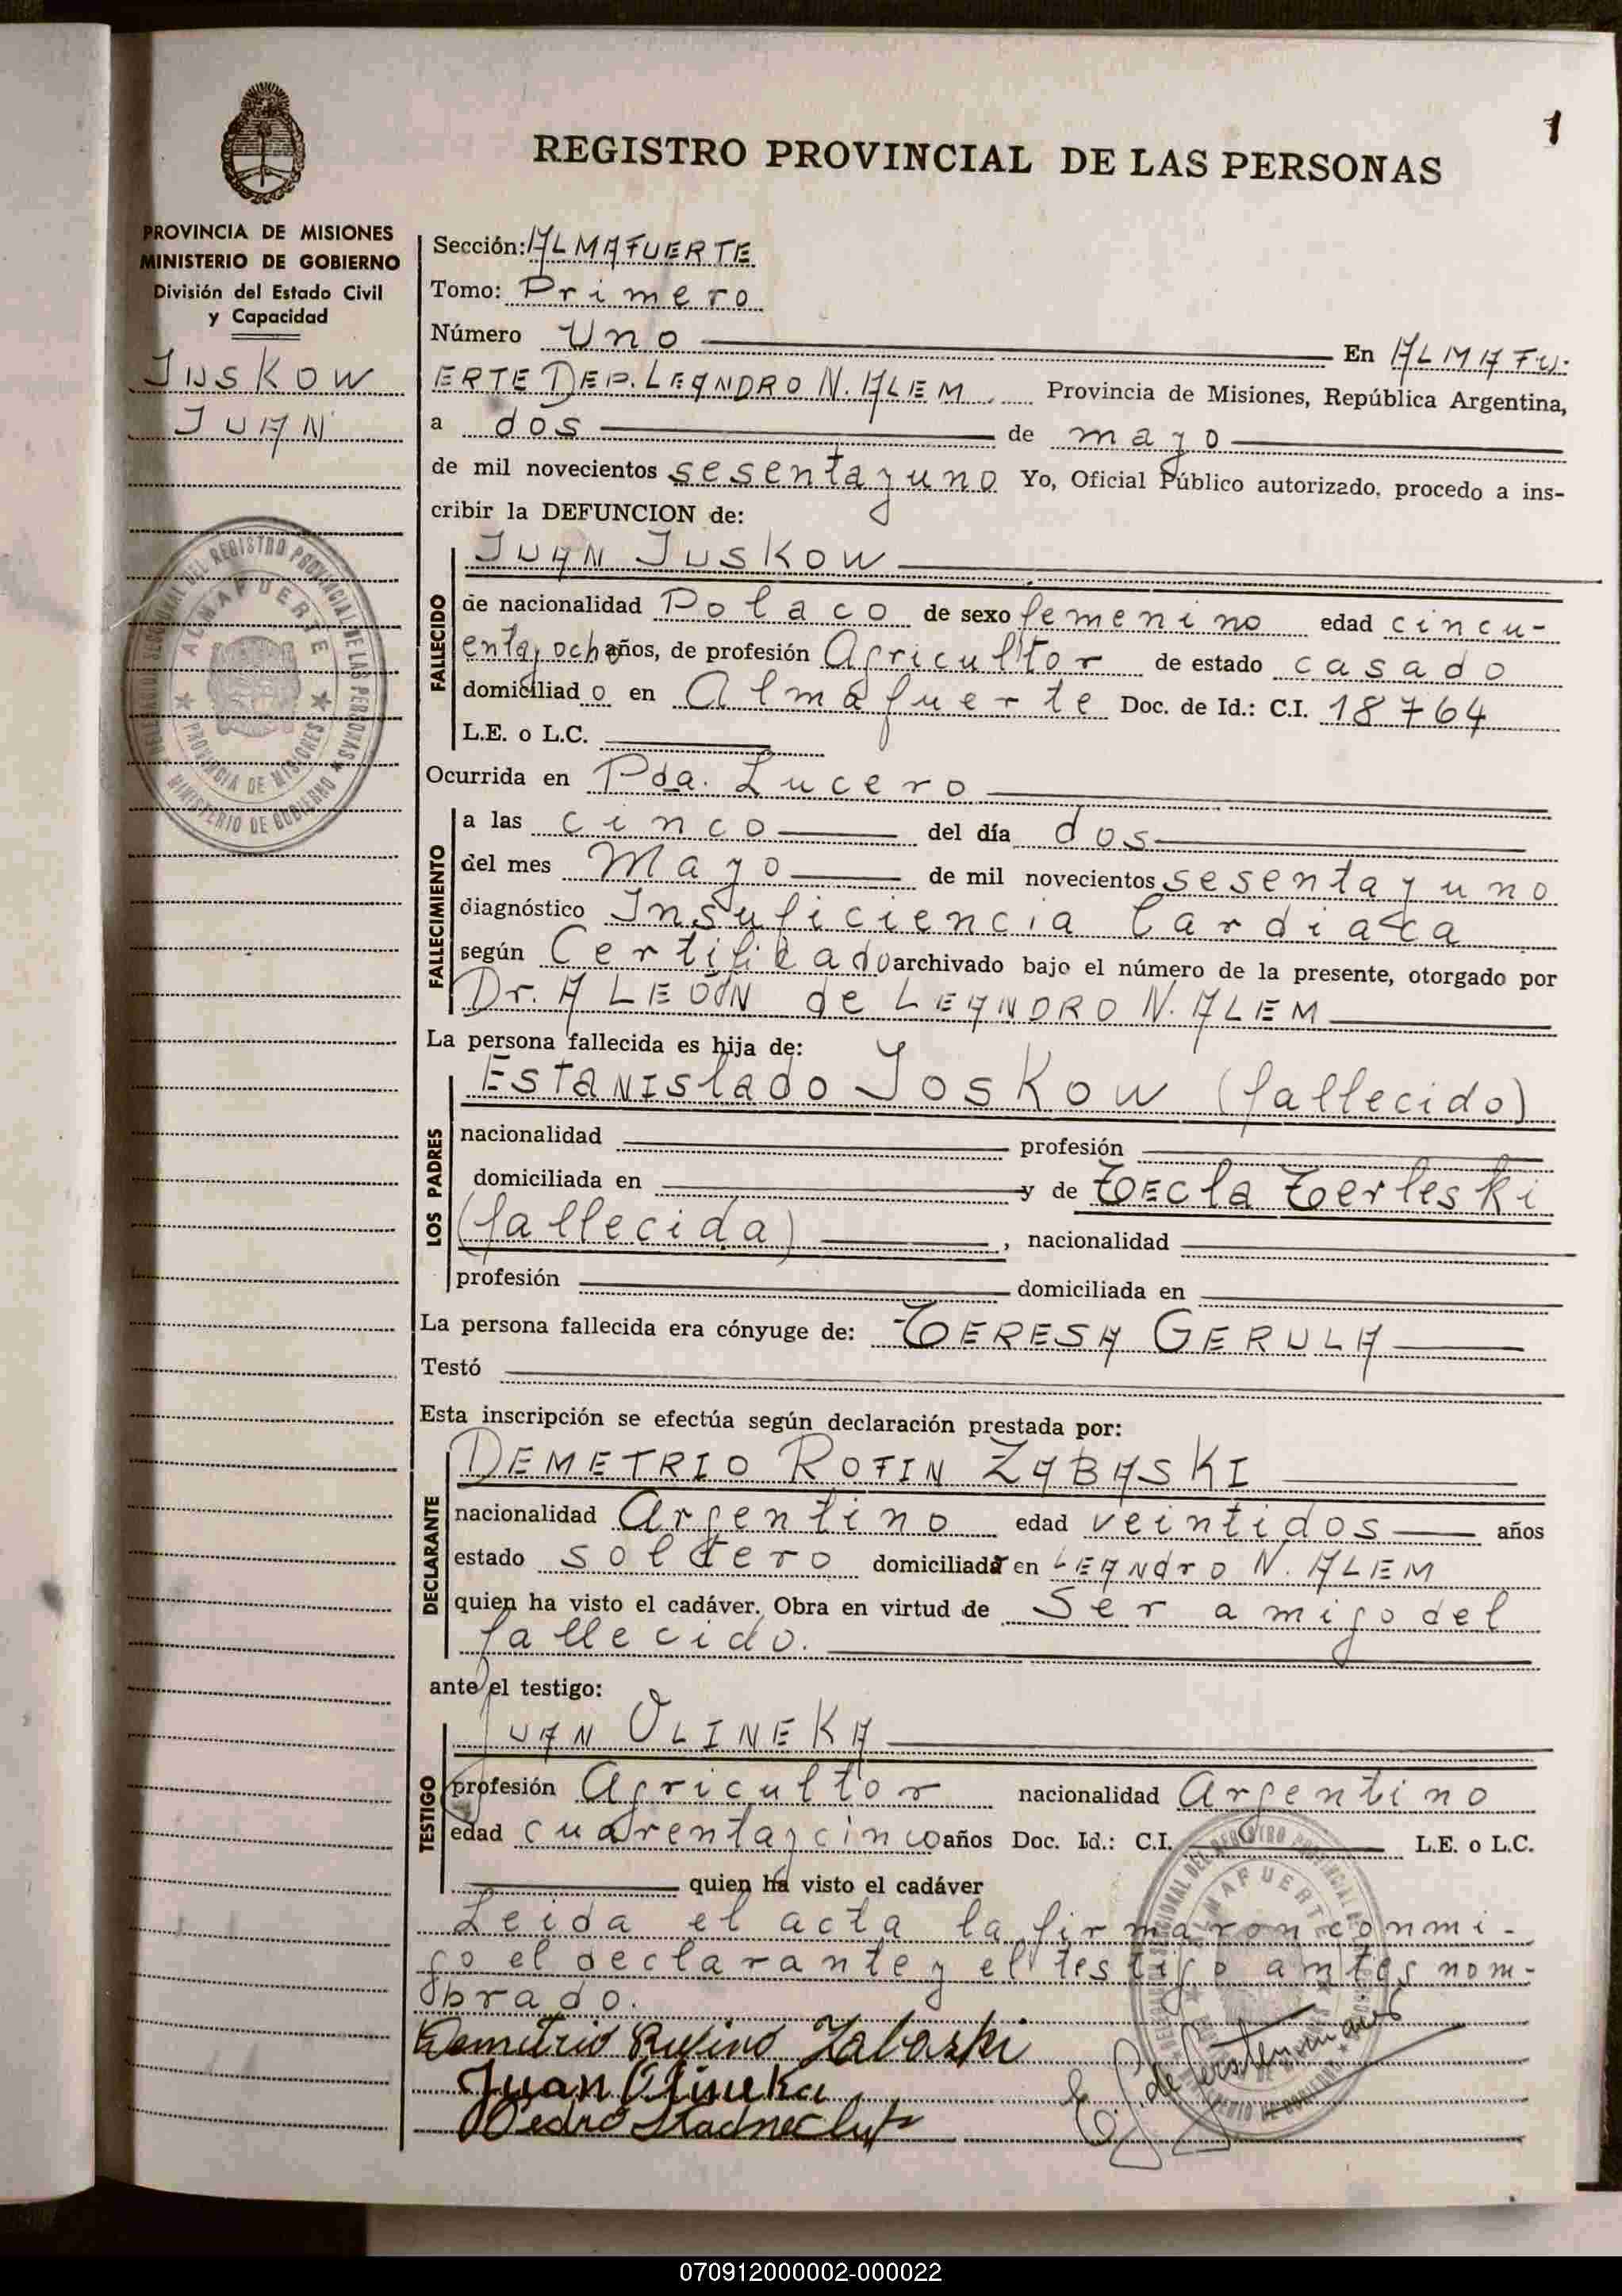 1
REGISTRO PROVINCIAL DE LAS PERSONAS
PROVINCIA DE MISIONES
MINISTERIO DE GOBIERNO
División del Estado Civil
y Capacidad
JUSKOW
JUAN
Sección: ALMAFUERTE
Tomo: Primero
Número Uno En ALMAFU-
ERTE DEP. LEANDRO N. ALEM Provincia de Misiones, República Argentina,
a dos de mayo
de mil novecientos sesenta y uno Yo, Oficial Público autorizado, procedo a ins-
cribir la DEFUNCION de:
JUAN JUSKOW
FALLECIDO
de nacionalidad Polaco de sexo femenino edad cincu-
enta y ocho años, de profesión Agricultor de estado casado
domiciliado en Almafuerte Doc. de Id.: C.I. 18764
L.E. o L.C.
Ocurrida en Pda. Lucero
FALLECIMIENTO
a las cinco del día dos
del mes Mayo de mil novecientos sesenta y uno
diagnóstico Insuficiencia Cardiaca
según Certificado archivado bajo el número de la presente, otorgado por
Dr. A LEÓN de LEANDRO N. ALEM
La persona fallecida es hija de:
LOS PADRES
ESTANISlado JOSKOW (fallecido)
nacionalidad profesión
domiciliada en y de TECla Terleski
(fallecida), nacionalidad
profesión domiciliada en
La persona fallecida era cónyuge de: TERESA GERULA
Testó
Esta inscripción se efectúa según declaración prestada por:
DECLARANTE
DEMETRIO ROFIN ZABASKI
nacionalidad Argentino edad veintidos años
estado soltero domiciliada en LEANdrO N. ALEM
quien ha visto el cadáver. Obra en virtud de Ser amigo del
fallecido.
ante el testigo:
TESTIGO
JUAN OLINEKA
profesión Agricultor nacionalidad Argentino
edad cuarenta y cinco años Doc. Id.: C.I. L.E. o L.C.
quien ha visto el cadáver
Leida el acta la firmaron conmi-
go el declarante y el testigo antes nom-
brado.
Demetrio Rufino Zabaski
Juan Olineka
Pedro
DELEGACION SECCIONAL DEL REGISTRO PROVINCIAL DE LAS PERSONAS
ALMAFUERTE
PROVINCIA DE MISIONES
MINISTERIO DE GOBIERNO
070912000002-000022